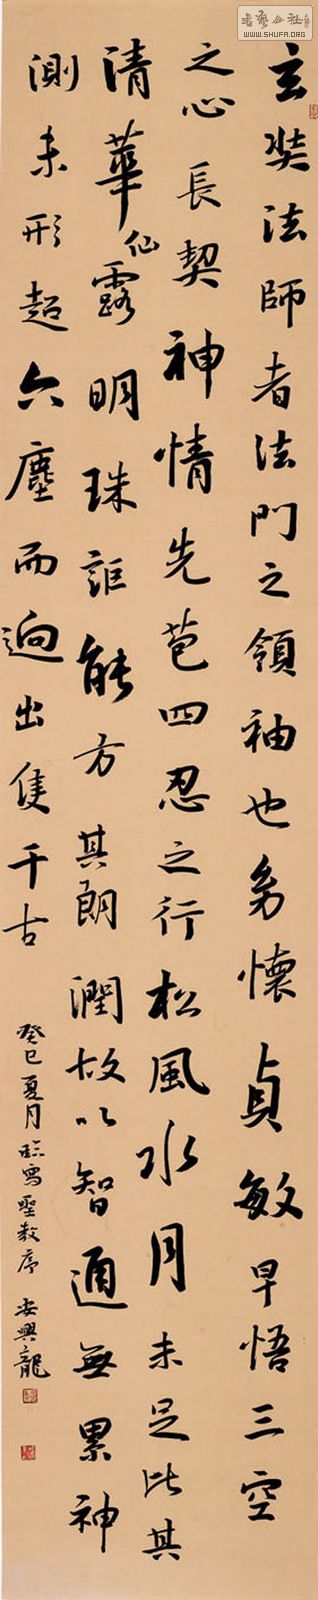 玄奘法師者法門之領袖也幼懷貞敏早悟三空
之心長契神情先苞四忍之行松風水月未足比其
清華仙露明珠詎能方其朗潤故以智通無累神
測未形超六塵而迥出隻千古
癸巳夏月臨寫聖教序 安興龍
書藝公社
WWW.SHUFA.ORG